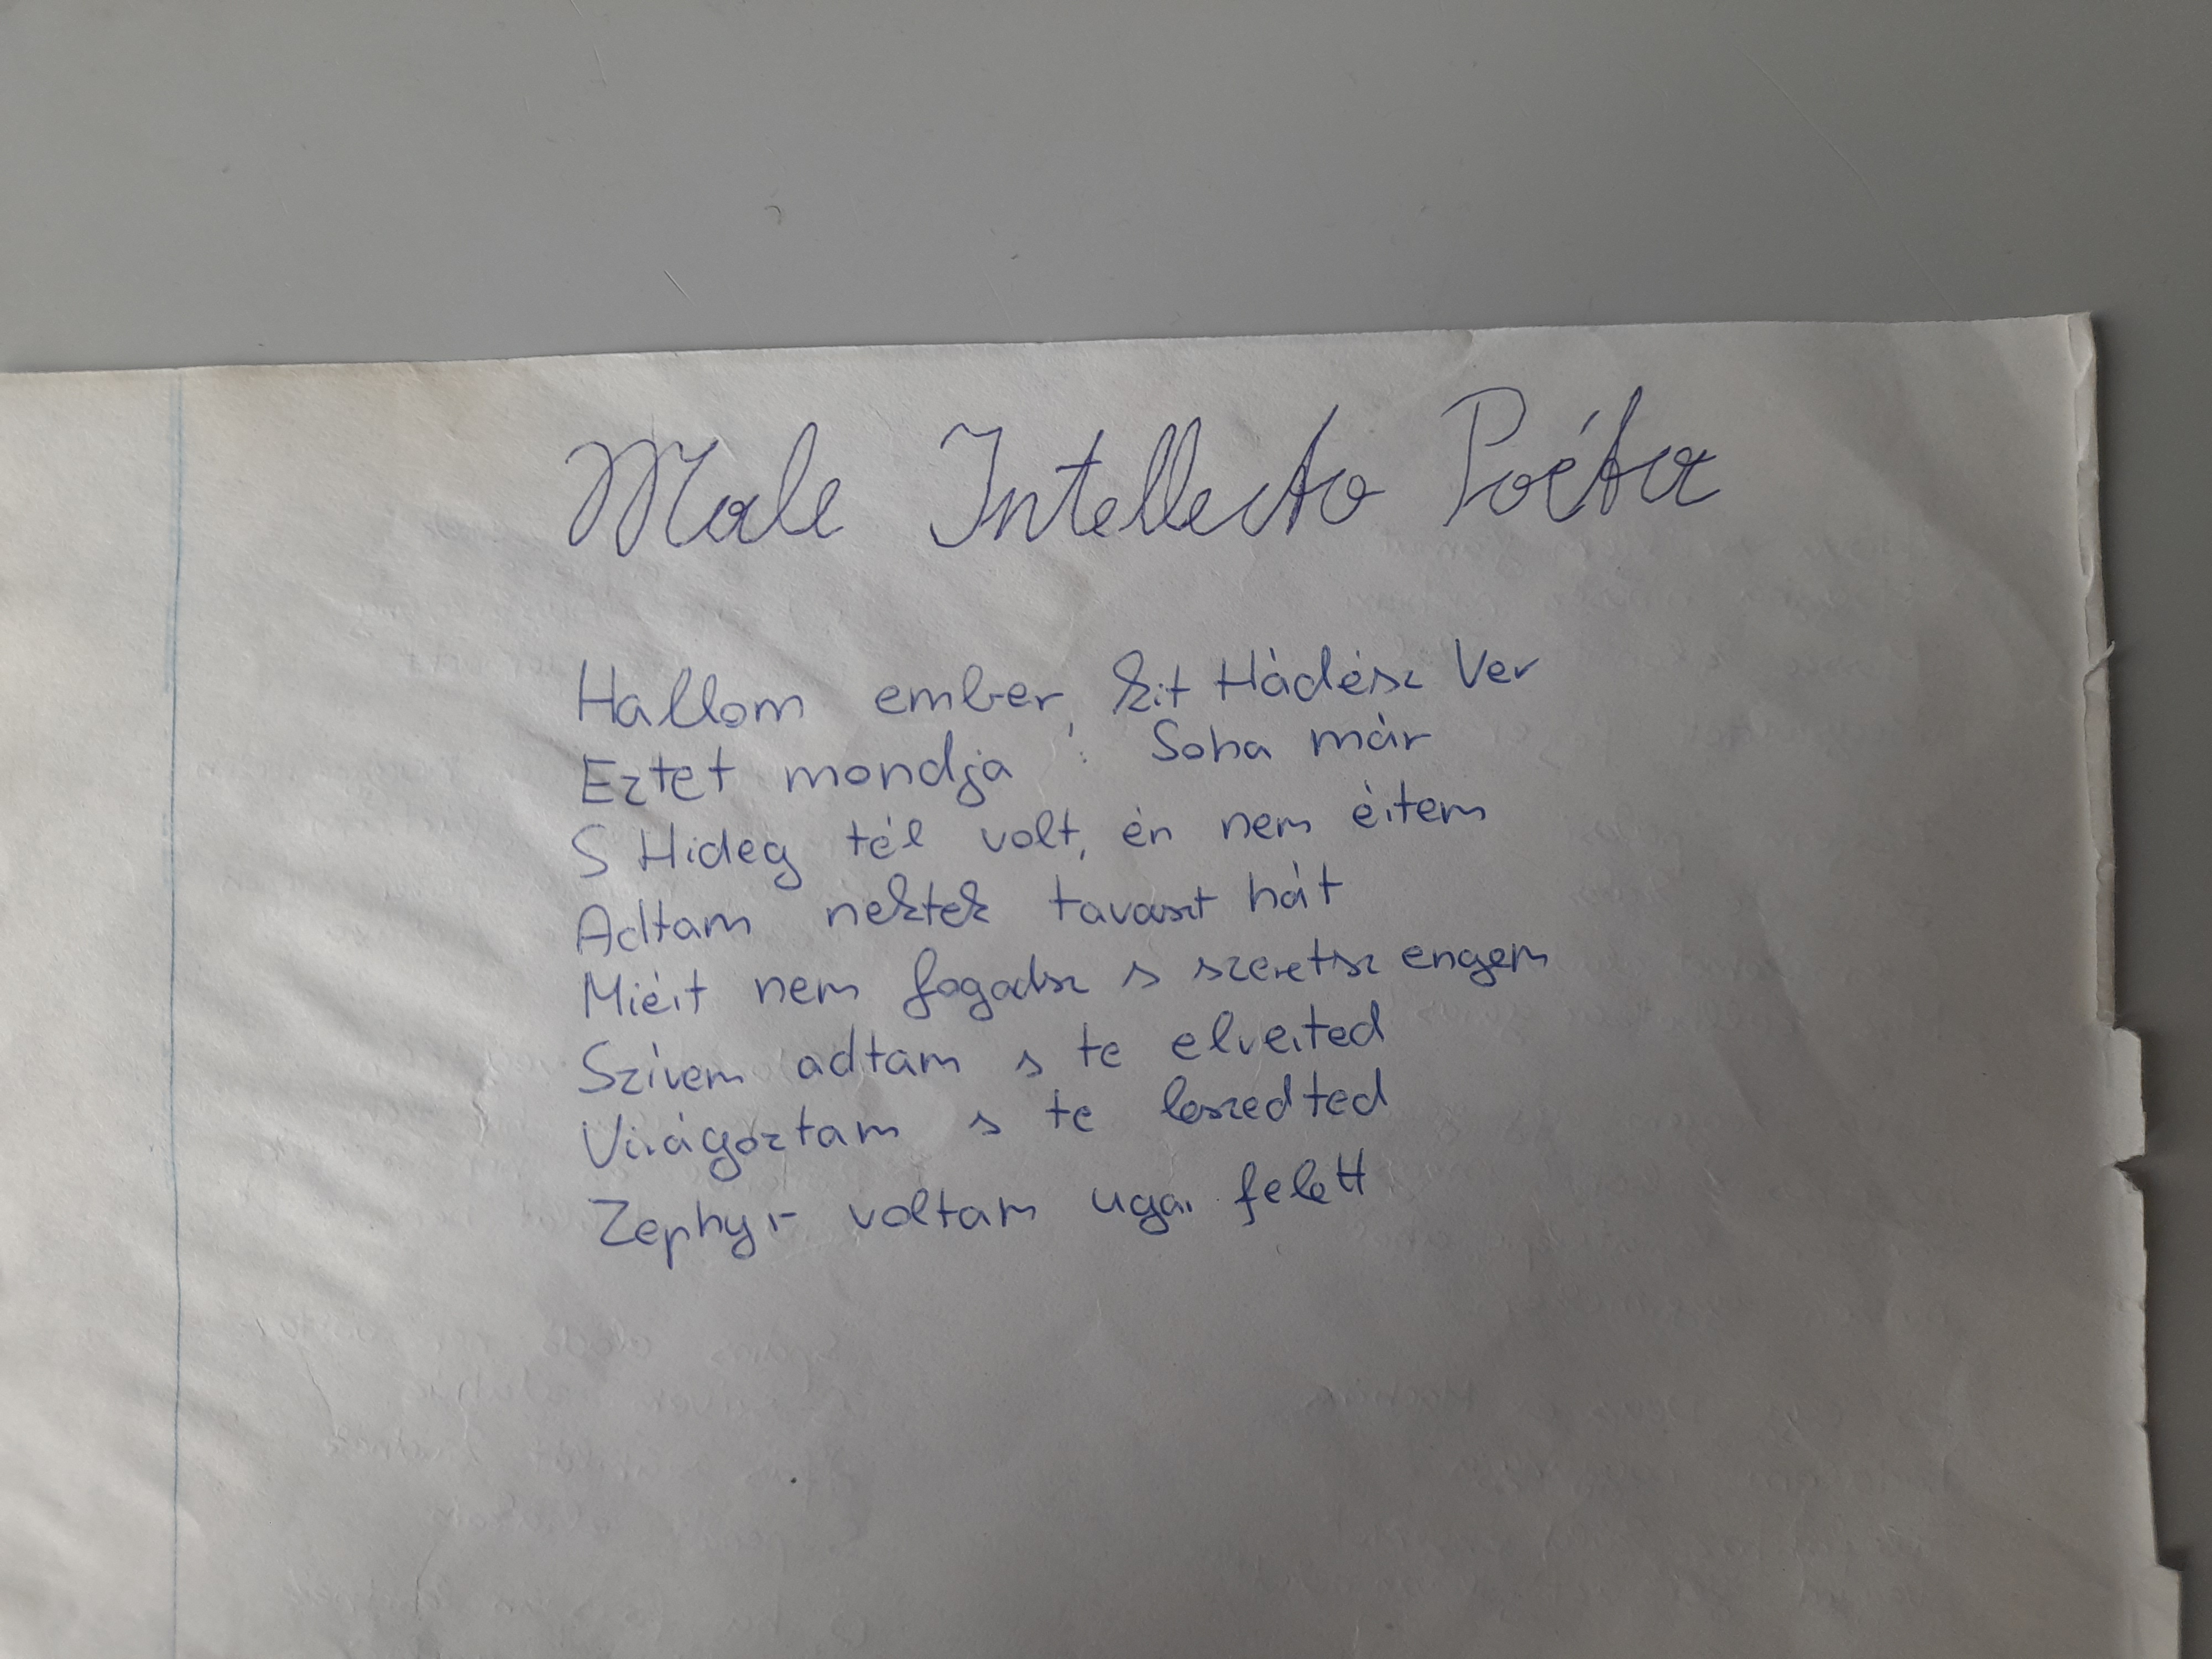 Male Intellecto Poéta
Hallom ember, kit Hádész Ver
Eztet mondja : Soha már
S Hideg tél volt, én nem értem
Adtam nektek tavaszt hát
Miért nem fogadsz s szeretsz engem
Szívem adtam s te elvérted
Virágoztam s te leszedted
Zephyr voltam ugar felett